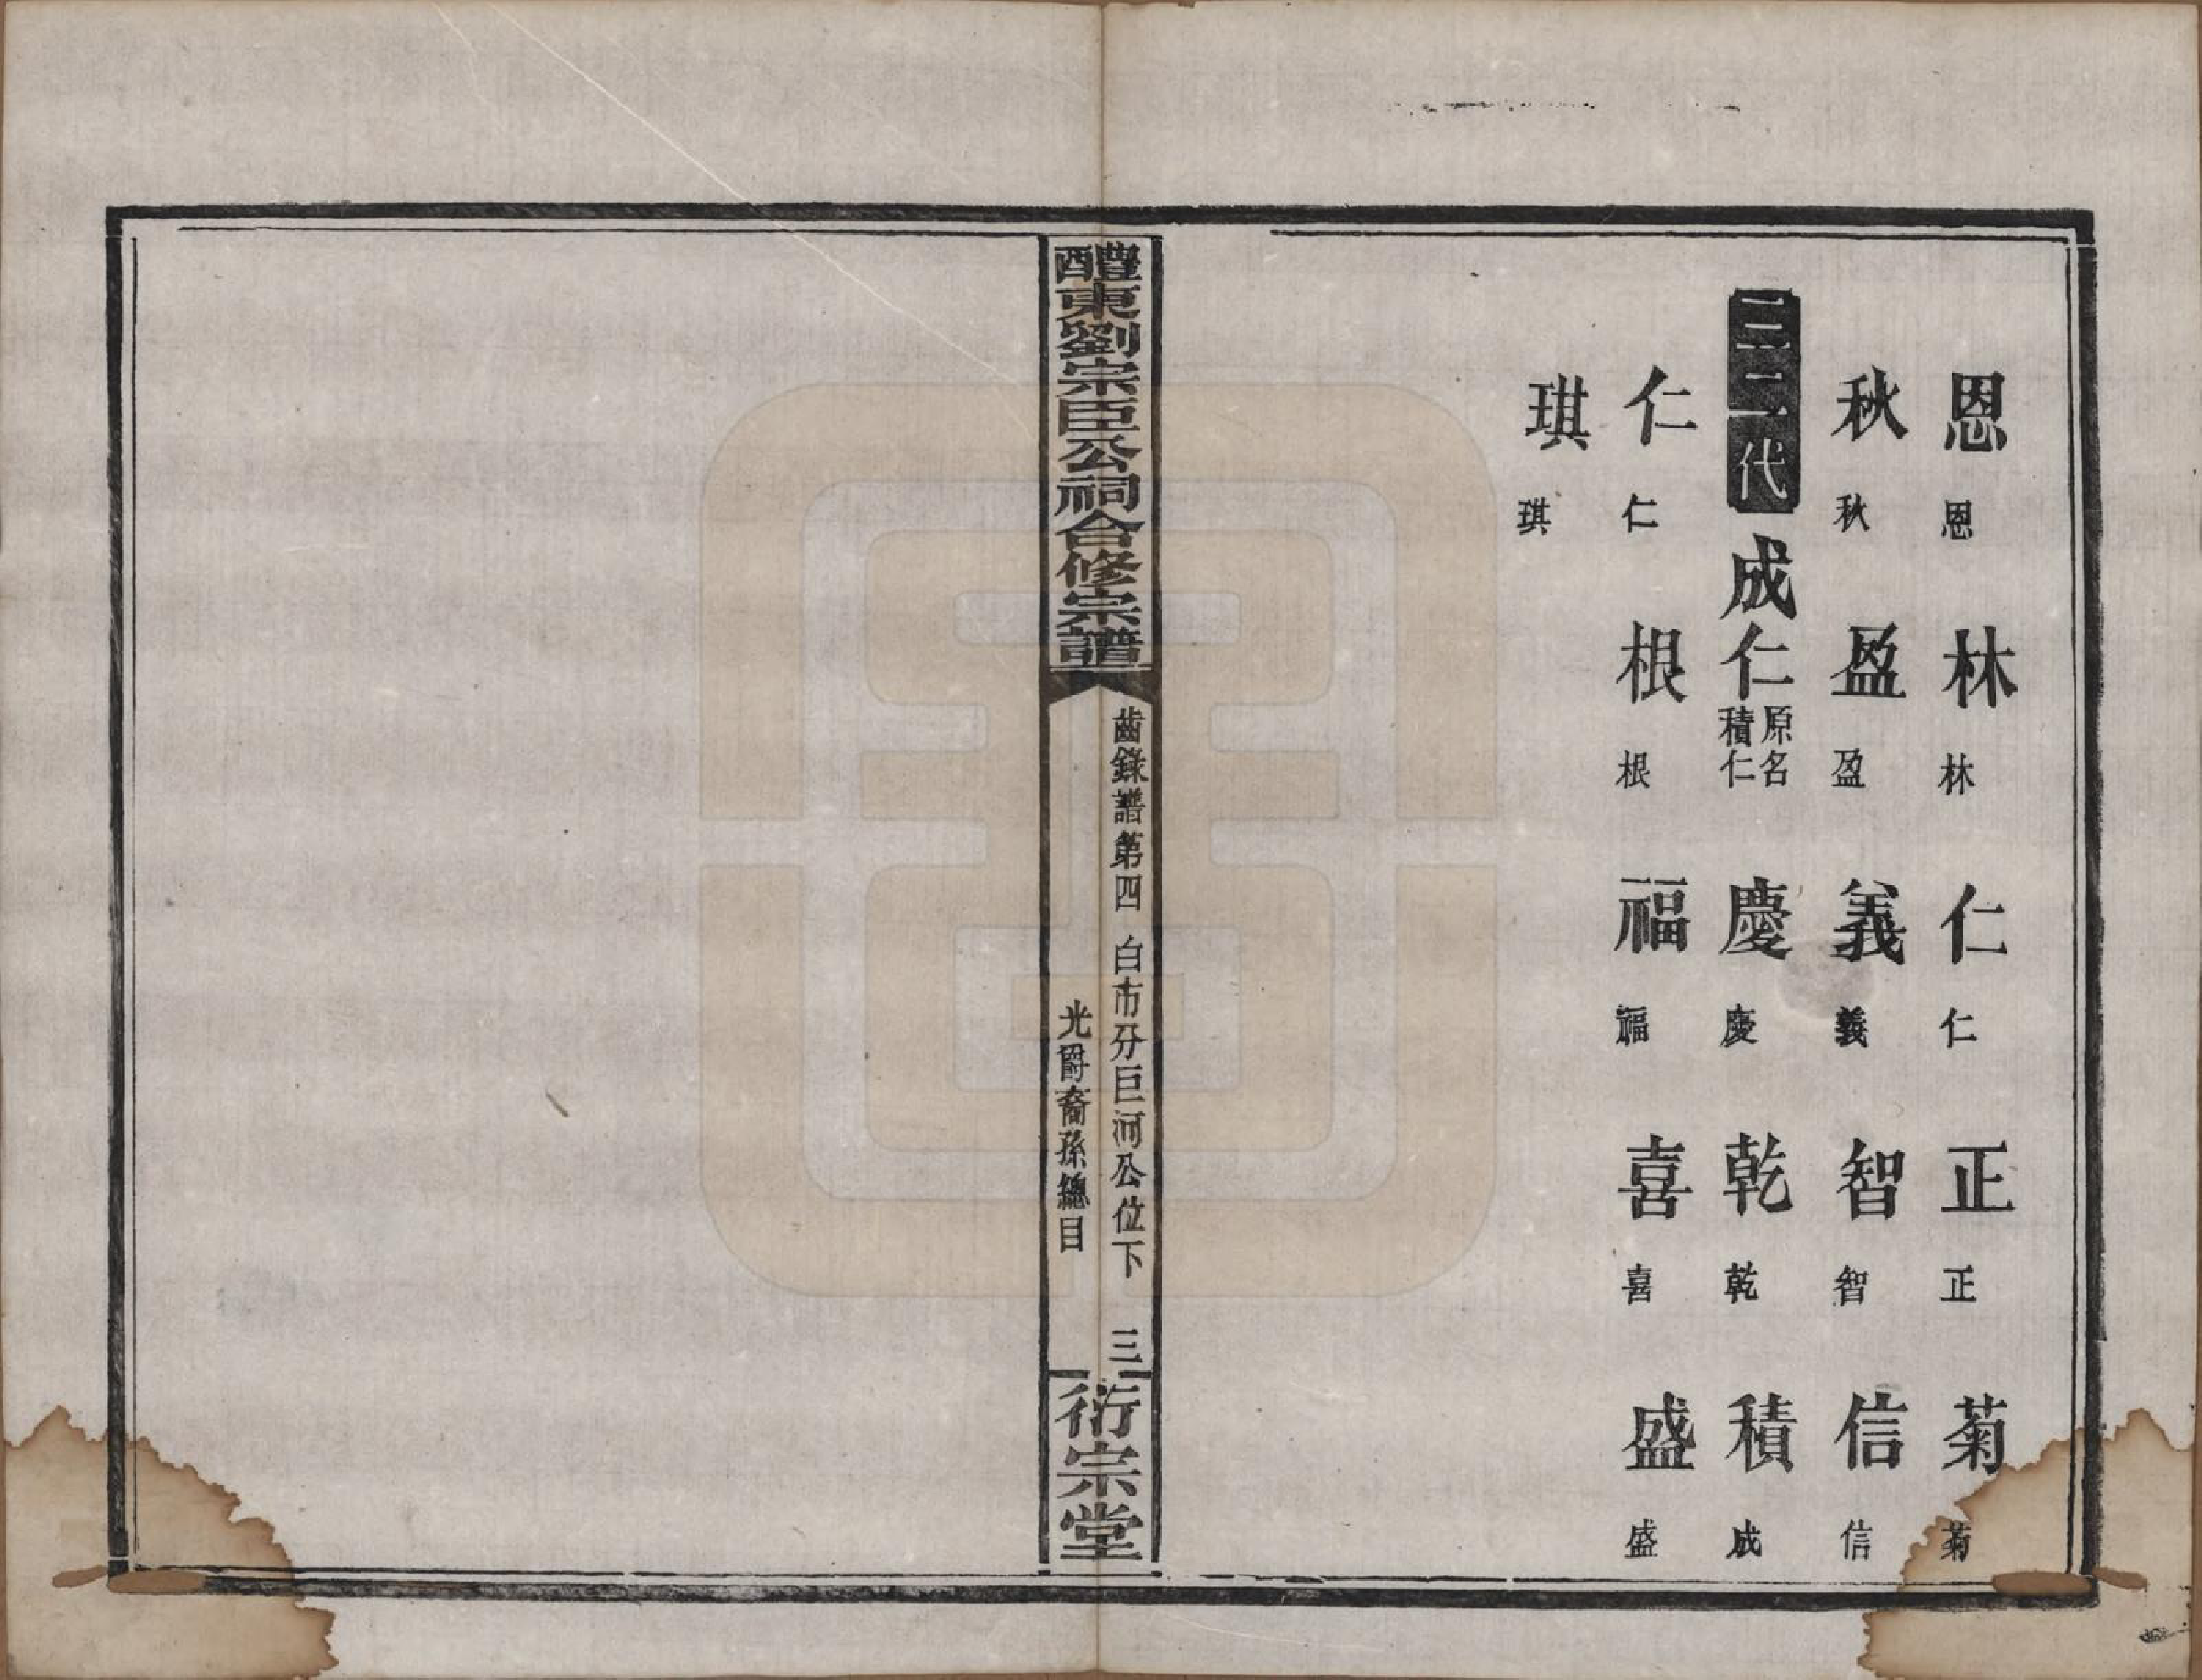 恩恩 林林 仁仁 正正 菊菊
秋秋 盈盈 義義 智智 信信
二二代 成仁原名積仁 慶慶 乾乾 積成
仁仁 根根 福福 喜喜 盛盛
琪琪
醴東劉宗臣公祠合修宗譜
齒錄譜第四 白市分巨河公位下 三
光爵裔孫總目
衍宗堂